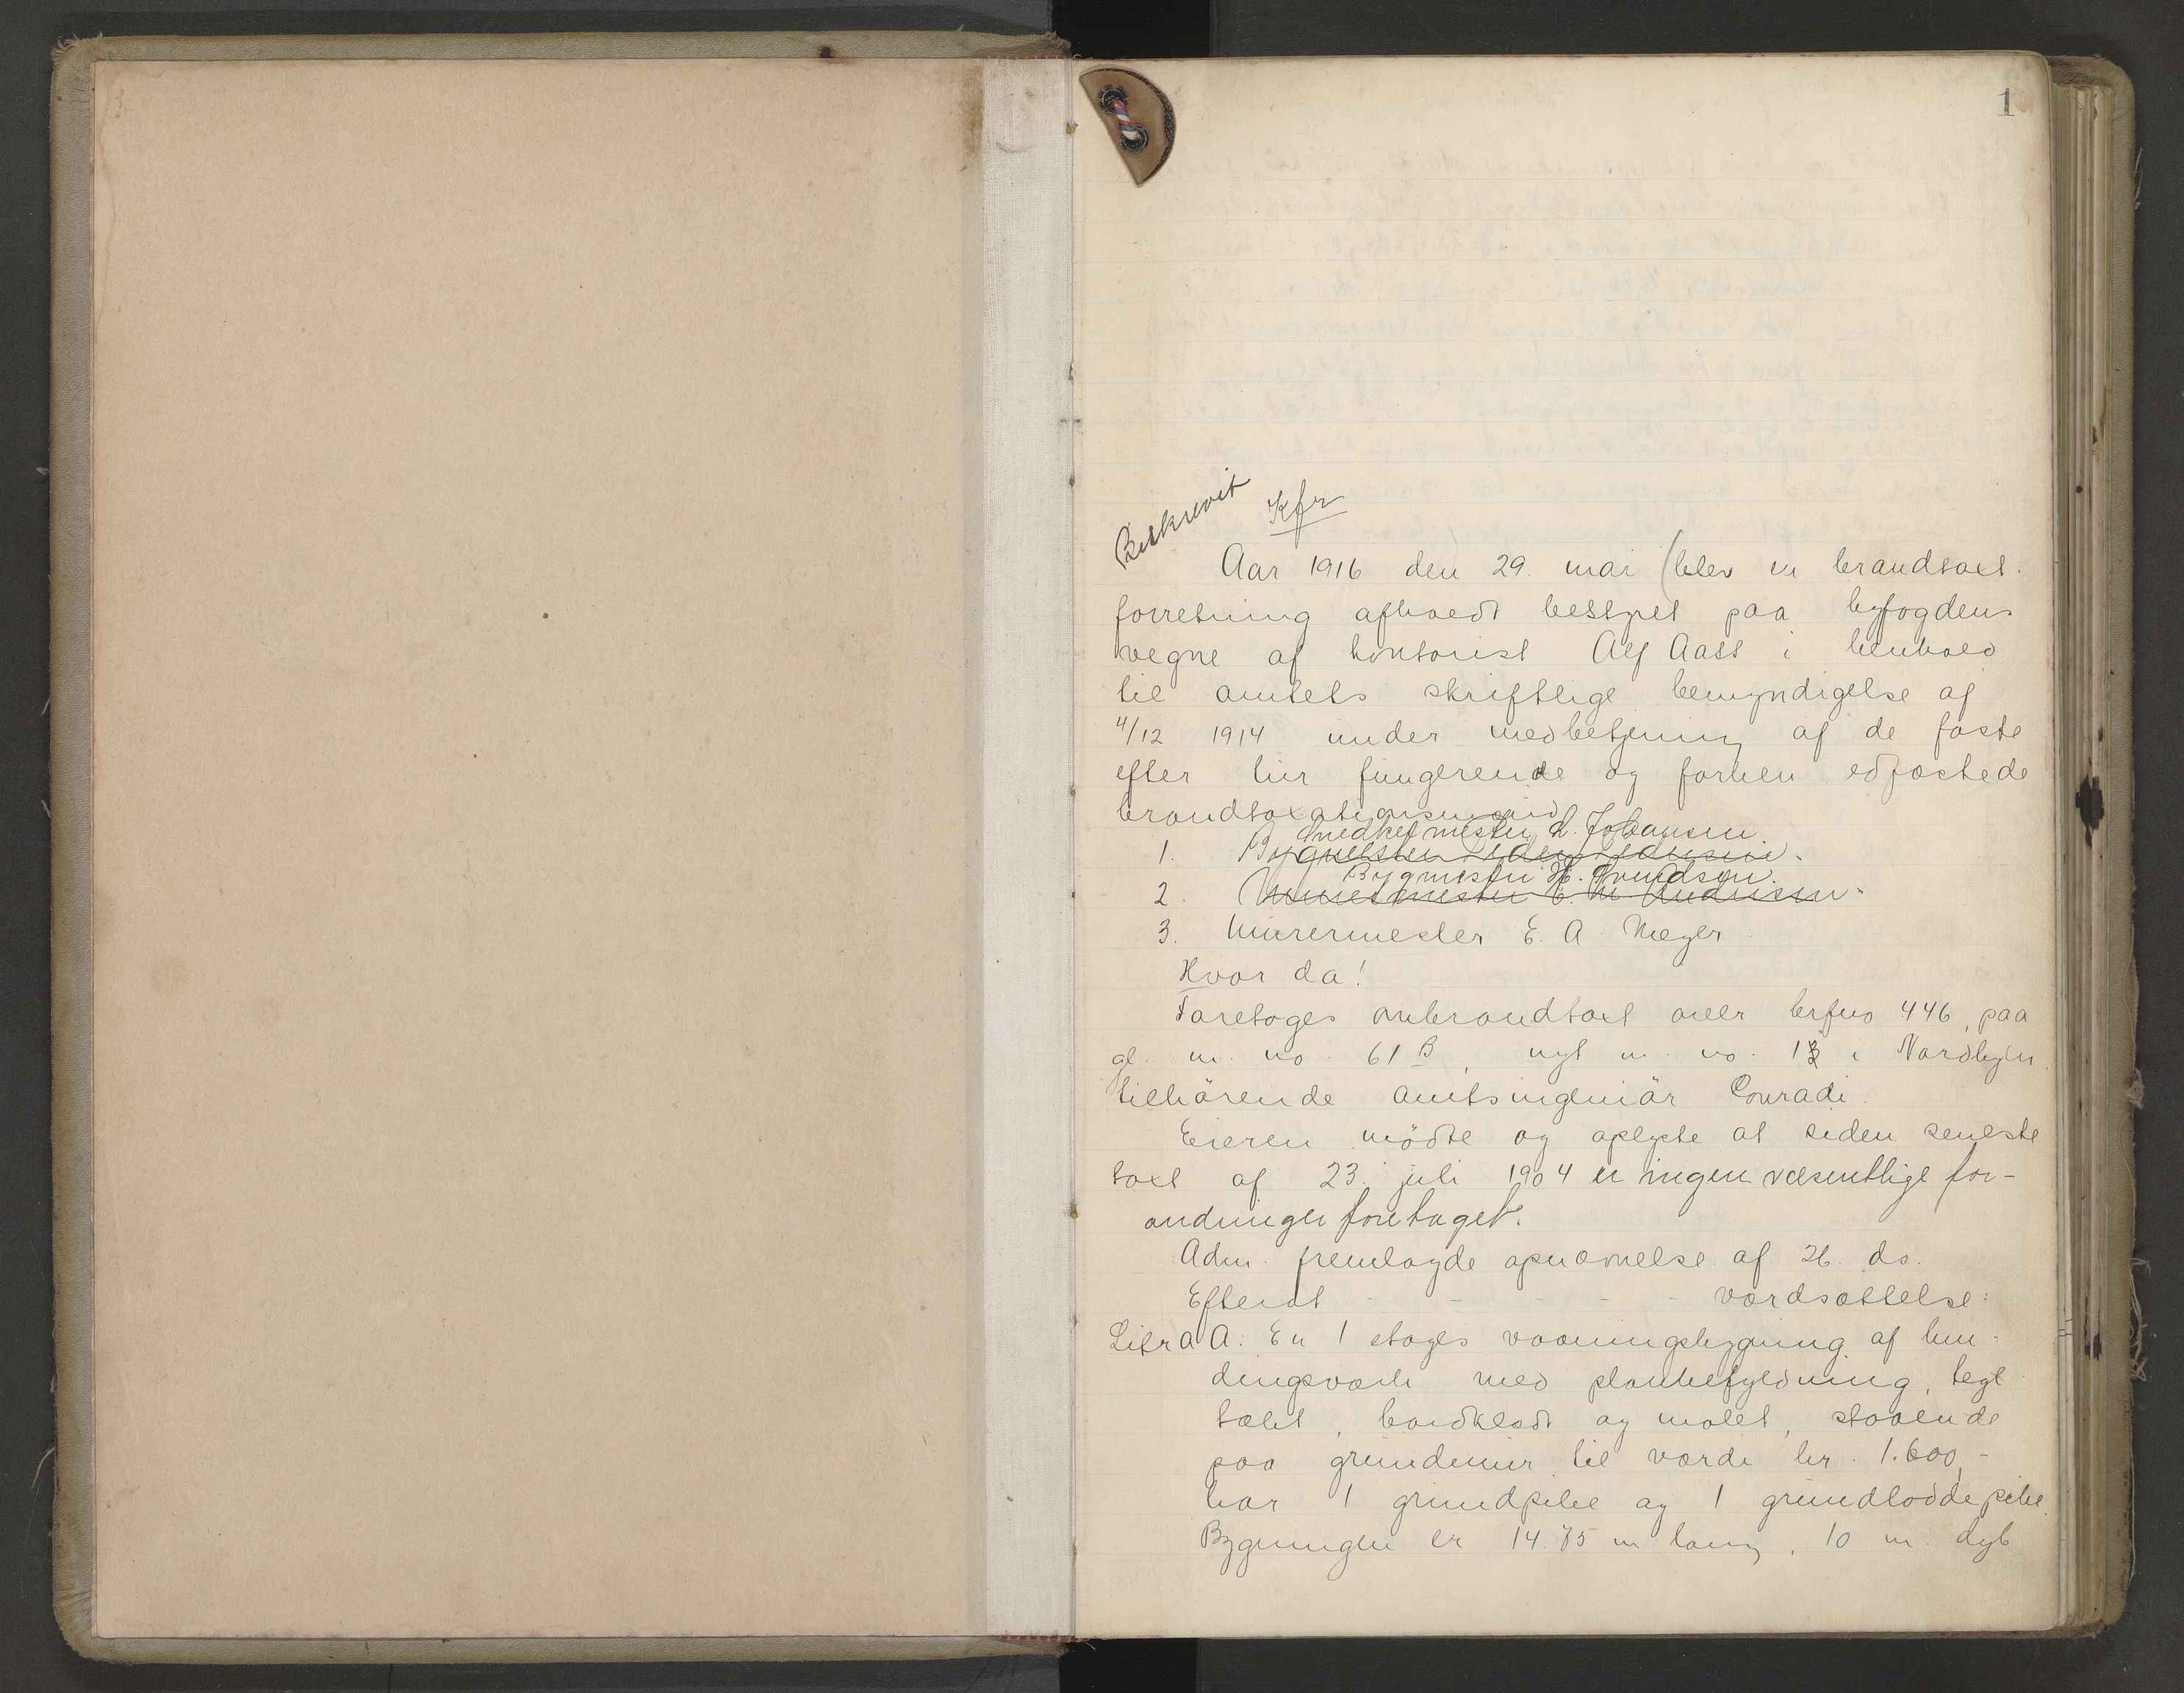 1
Beskrevet Kfr
Aar 1916 den 29. mai (blev en brandtaxt-
forretning afholdt bestyret paa byfogdens
vegne af kontorist Alf Aass i henhold
til amtets skriftlige bemyndigelse af
4/12 1914 under medbetjening af de faste
efter tur fungerende og forhen edfæstede
brandtaxationsmænd
Snedkermester L. Johansen
1. Bygmester Peder Pedersen.
Bygmester H. Svendsen.
2. Murermester C. M. Andersen.
3. Murermester E. A. Meyer
Hvor da!
Foretoges ombrandtaxt over brfno 446, paa
gl. m. no. 61 B, nyt m. no. 13 i Nordbyen
tilhörende amtsingeniör Conradi.
Eieren mödte og oplyste at siden seneste
taxt af 23. juli 1904 er ingen væsentlige for-
andringer foretaget.
Adm. fremlagde opnævnelse af 26. ds.
Efterat - - - - - værdsættelse:
Litra A: En 1 etages vaaningsbygning af bin-
dingsværk med plankefyldning, tegl
tækt, bordklædt og malet, staaende
paa grundmur til værdi kr. 1.600,-
har 1 grundpibe og 1 grundloddepibe.
Bygningen er 14.75 m lang, 10 m. dyb